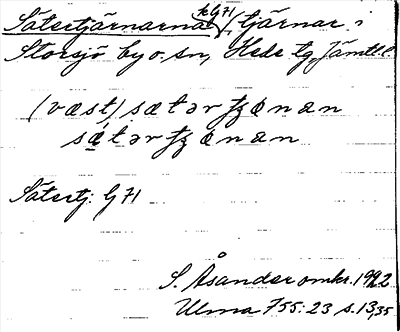 Sätertjärnarna kG71, tjärnar i
Storsjö by o. sn, Hede tg, Jämtl. l.
(væst) sætər
sætər
Sätertj: G 71
S. Åsander omkr. 1922
Ulma 755:23 s. 13, 35